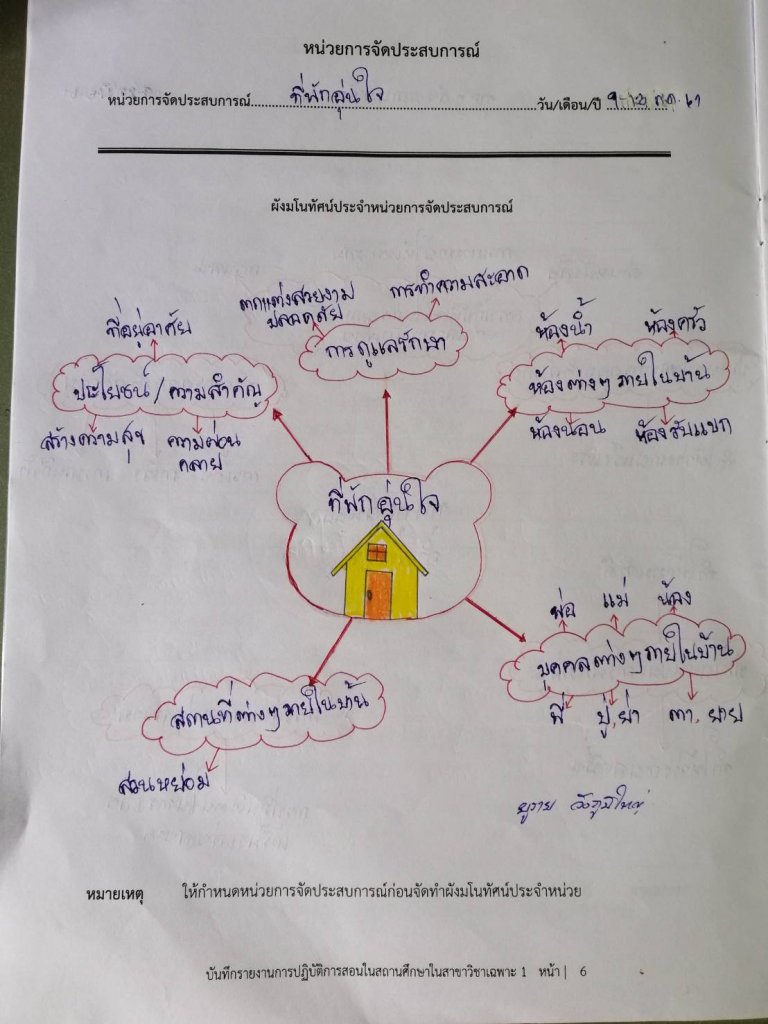 หน่วยการจัดประสบการณ์
หน่วยการจัดประสบการณ์ ที่พักอุ่นใจ วัน/เดือน/ปี
ผังมโนทัศน์ประจำหน่วยการจัดประสบการณ์
ตกแต่งสวยงาม
ปลอดภัย
การทำความสะอาด
การดูแลรักษา
ที่อยู่อาศัย
ประโยชน์/ความสำคัญ
สร้างความสุข
ความผ่อน
คลาย
ห้องน้ำ ห้องครัว
ห้องต่างๆ ภายในบ้าน
ห้องนอน ห้องรับแขก
ที่พักอุ่นใจ
พ่อ แม่ น้อง
บุคคลต่างๆ ภายในบ้าน
พี่ ปู่,ย่า ตา,ยาย
สถานที่ต่างๆ ภายในบ้าน
สวนหย่อม
หมายเหตุ ให้กำหนดหน่วยการจัดประสบการณ์ก่อนจัดทำผังมโนทัศน์ประจำหน่วย
บันทึกรายงานการปฏิบัติการสอนในสถานศึกษาในสาขาวิชาเฉพาะ 1 หน้า | 6